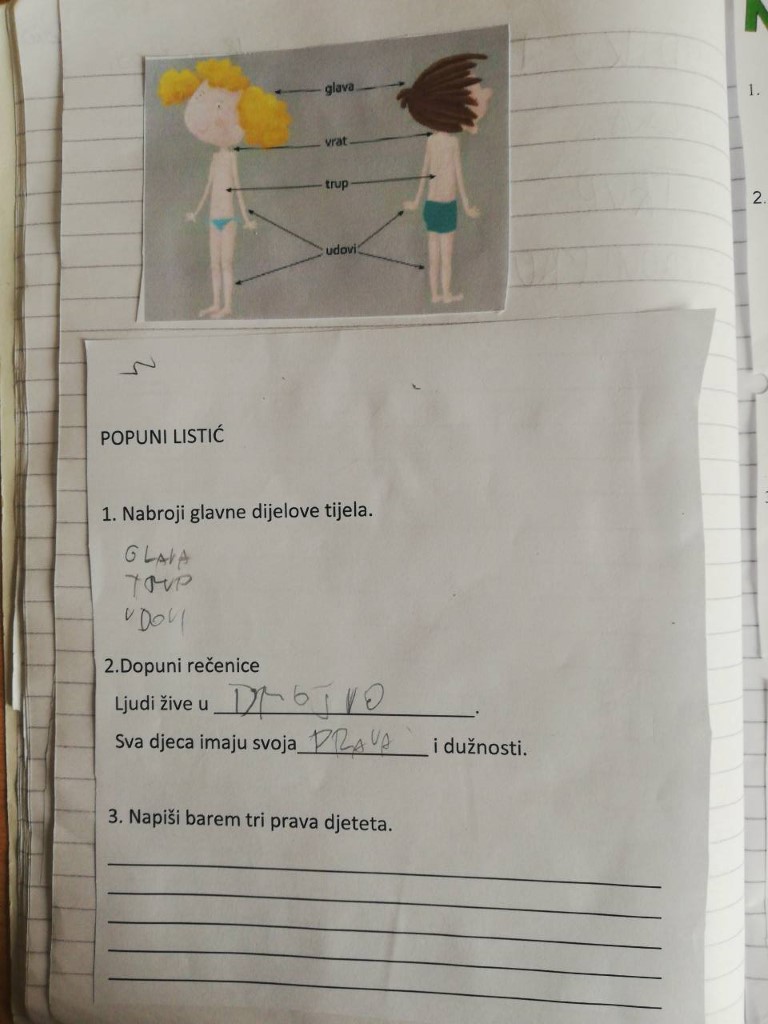 glava
vrat
trup
udovi
POPUNI LISTIĆ
1. Nabroji glavne dijelove tijela.
GLAVA
TRUP
UDOVI
2.Dopuni rečenice
Ljudi žive u ____________.
Sva djeca imaju svoja PRAVA i dužnosti.
3. Napiši barem tri prava djeteta.
1.
2.